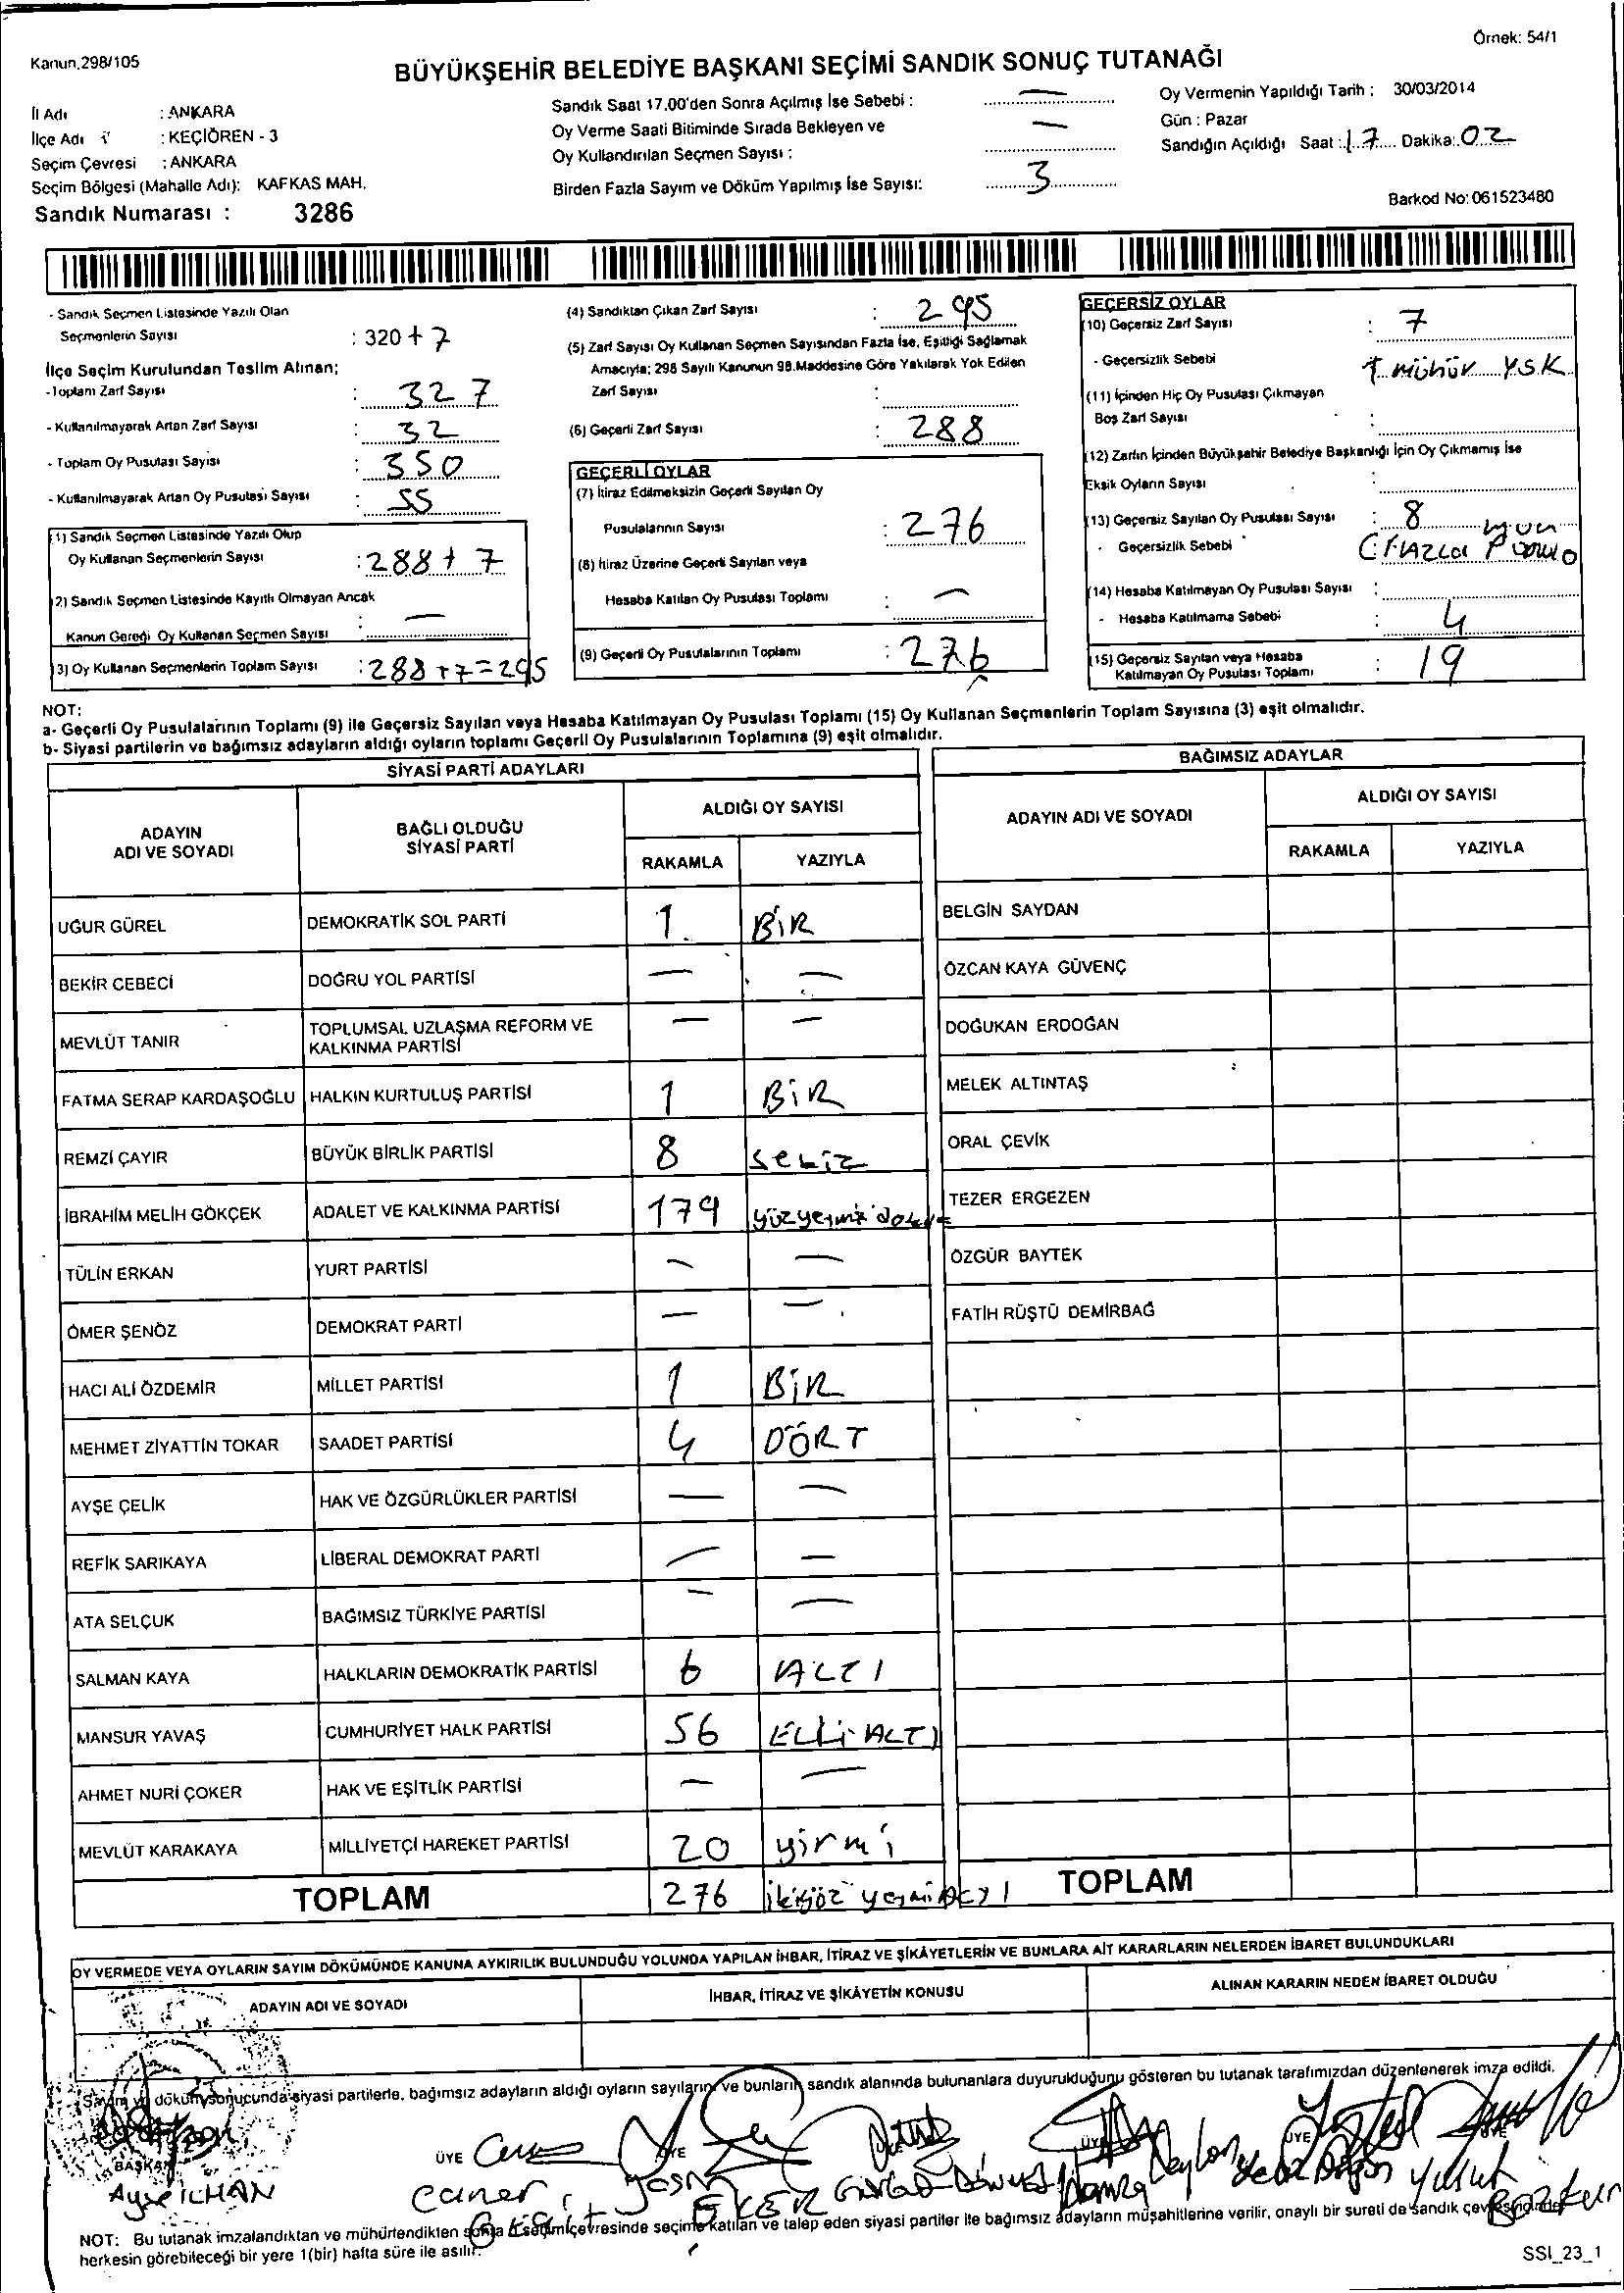 Örnek: 54/1
Kanun.298/105
BÜYÜKŞEHİR BELEDİYE BAŞKANI SEÇİMİ SANDIK SONUÇ TUTANAĞI
İl Adı : ANKARA
İlçe Adı : KEÇİÖREN - 3
Seçim Çevresi : ANKARA
Seçim Bölgesi (Mahalle Adı): KAFKAS MAH.
Sandık Numarası : 3286
Sandık Saat 17.00'den Sonra Açılmış İse Sebebi : —
Oy Verme Saati Bitiminde Sırada Bekleyen ve
Oy Kullandırılan Seçmen Sayısı : —
Birden Fazla Sayım ve Döküm Yapılmış İse Sayısı: 3
Oy Vermenin Yapıldığı Tarih : 30/03/2014
Gün : Pazar
Sandığın Açıldığı Saat : 17 Dakika: 02
Barkod No: 061523480
- Sandık Seçmen Listesinde Yazılı Olan
Seçmenlerin Sayısı : 320 + 7
İlçe Seçim Kurulundan Teslim Alınan;
- Toplam Zarf Sayısı : 327
- Kullanılmayarak Artan Zarf Sayısı : 32
- Toplam Oy Pusulası Sayısı : 350
- Kullanılmayarak Artan Oy Pusulası Sayısı : 55
(1) Sandık Seçmen Listesinde Yazılı Olup
Oy Kullanan Seçmenlerin Sayısı : 288 + 7
(2) Sandık Seçmen Listesinde Kayıtlı Olmayan Ancak
Kanun Gereği Oy Kullanan Seçmen Sayısı : —
(3) Oy Kullanan Seçmenlerin Toplam Sayısı : 288+7=295
(4) Sandıktan Çıkan Zarf Sayısı : 295
(5) Zarf Sayısı Oy Kullanan Seçmen Sayısından Fazla İse, Eşitliği Sağlamak
Amacıyla; 298 Sayılı Kanunun 98.Maddesine Göre Yakılarak Yok Edilen
Zarf Sayısı :
(6) Geçerli Zarf Sayısı : 288
GEÇERLİ OYLAR
(7) İtiraz Edilmeksizin Geçerli Sayılan Oy
Pusulalarının Sayısı : 276
(8) İtiraz Üzerine Geçerli Sayılan veya
Hesaba Katılan Oy Pusulası Toplamı : —
(9) Geçerli Oy Pusulalarının Toplamı : 276
GEÇERSİZ OYLAR
(10) Geçersiz Zarf Sayısı : 7
- Geçersizlik Sebebi mühür YSK
(11) İçinden Hiç Oy Pusulası Çıkmayan
Boş Zarf Sayısı :
(12) Zarfın İçinden Büyükşehir Belediye Başkanlığı İçin Oy Çıkmamış İse
Eksik Oyların Sayısı :
(13) Geçersiz Sayılan Oy Pusulası Sayısı : 8
- Geçersizlik Sebebi
(14) Hesaba Katılmayan Oy Pusulası Sayısı :
- Hesaba Katılmama Sebebi : 4
(15) Geçersiz Sayılan veya Hesaba
Katılmayan Oy Pusulası Toplamı : 19
NOT:
a- Geçerli Oy Pusulalarının Toplamı (9) ile Geçersiz Sayılan veya Hesaba Katılmayan Oy Pusulası Toplamı (15) Oy Kullanan Seçmenlerin Toplam Sayısına (3) eşit olmalıdır.
b- Siyasi partilerin ve bağımsız adayların aldığı oyların toplamı Geçerli Oy Pusulalarının Toplamına (9) eşit olmalıdır.
SİYASİ PARTİ ADAYLARI
ADAYIN ADI VE SOYADI BAĞLI OLDUĞU SİYASİ PARTİ ALDIĞI OY SAYISI
RAKAMLA YAZIYLA
UĞUR GÜREL DEMOKRATİK SOL PARTİ 1 BİR
BEKİR CEBECİ DOĞRU YOL PARTİSİ — —
MEVLÜT TANIR TOPLUMSAL UZLAŞMA REFORM VE KALKINMA PARTİSİ — —
FATMA SERAP KARDAŞOĞLU HALKIN KURTULUŞ PARTİSİ 1 BİR
REMZİ ÇAYIR BÜYÜK BİRLİK PARTİSİ 8 sekiz
İBRAHİM MELİH GÖKÇEK ADALET VE KALKINMA PARTİSİ 179
TÜLİN ERKAN YURT PARTİSİ — —
ÖMER ŞENÖZ DEMOKRAT PARTİ — —
HACI ALİ ÖZDEMİR MİLLET PARTİSİ 1 BİR
MEHMET ZİYATTİN TOKAR SAADET PARTİSİ 4 DÖRT
AYŞE ÇELİK HAK VE ÖZGÜRLÜKLER PARTİSİ — —
REFİK SARIKAYA LİBERAL DEMOKRAT PARTİ — —
ATA SELÇUK BAĞIMSIZ TÜRKİYE PARTİSİ — —
SALMAN KAYA HALKLARIN DEMOKRATİK PARTİSİ 6 ALTI
MANSUR YAVAŞ CUMHURİYET HALK PARTİSİ 56 ELLİ ALTI
AHMET NURİ ÇOKER HAK VE EŞİTLİK PARTİSİ — —
MEVLÜT KARAKAYA MİLLİYETÇİ HAREKET PARTİSİ 20 yirmi
TOPLAM 276
BAĞIMSIZ ADAYLAR
ADAYIN ADI VE SOYADI ALDIĞI OY SAYISI
RAKAMLA YAZIYLA
BELGİN SAYDAN
ÖZCAN KAYA GÜVENÇ
DOĞUKAN ERDOĞAN
MELEK ALTINTAŞ
ORAL ÇEVİK
TEZER ERGEZEN
ÖZGÜR BAYTEK
FATİH RÜŞTÜ DEMİRBAĞ
TOPLAM
OY VERMEDE VEYA OYLARIN SAYIM DÖKÜMÜNDE KANUNA AYKIRILIK BULUNDUĞU YOLUNDA YAPILAN İHBAR, İTİRAZ VE ŞİKÂYETLERİN VE BUNLARA AİT KARARLARIN NELERDEN İBARET BULUNDUKLARI
ADAYIN ADI VE SOYADI İHBAR, İTİRAZ VE ŞİKÂYETİN KONUSU ALINAN KARARIN NEDEN İBARET OLDUĞU
Sayım ve döküm sonucunda siyasi partilerle, bağımsız adayların aldığı oyların sayılarını ve bunların sandık alanında bulunanlara duyurulduğunu gösteren bu tutanak tarafımızdan düzenlenerek imza edildi.
BAŞKAN ÜYE ÜYE ÜYE ÜYE
Ayşe İLHAN Caner Yasin EKER Hamza Yusuf
NOT: Bu tutanak imzalandıktan ve mühürlendikten sonra seçim çevresinde seçime katılan ve talep eden siyasi partiler ile bağımsız adayların müşahitlerine verilir, onaylı bir sureti de sandık çevresinde
herkesin görebileceği bir yere 1(bir) hafta süre ile asılır.
SSI_23_1